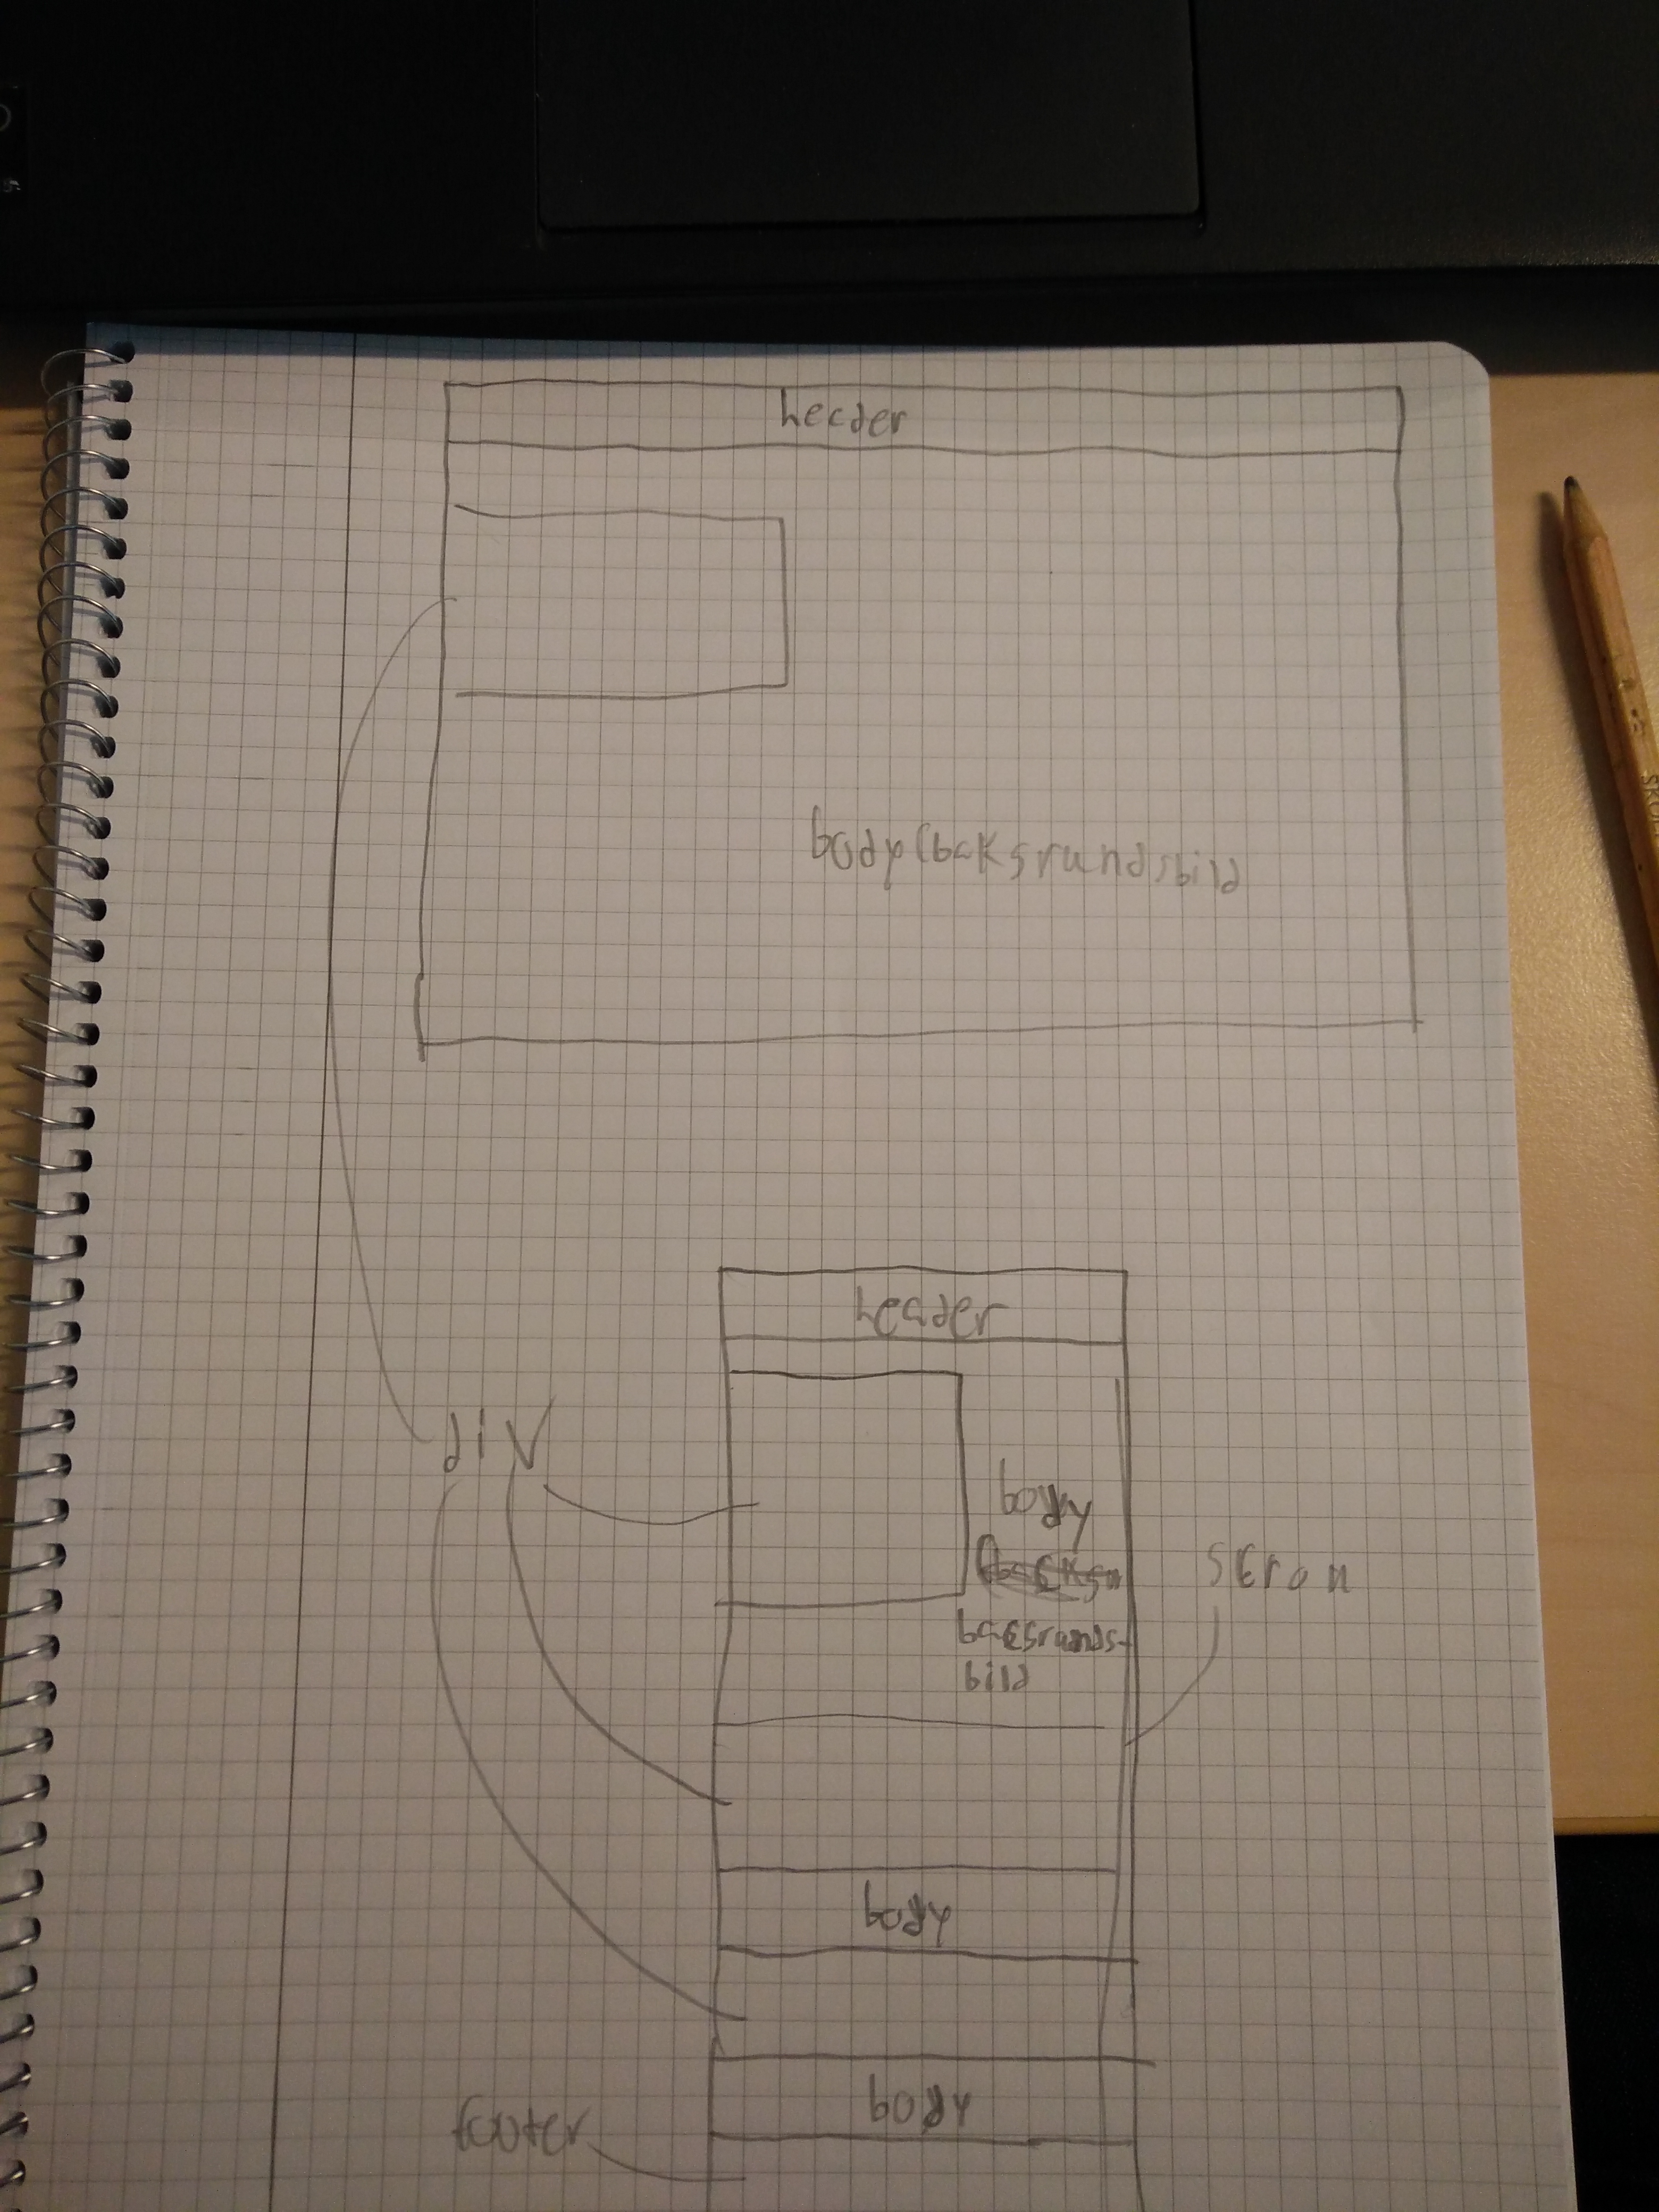 header
body (bakgrundsbild
header
div
body
bakgrunds-
bild
body
body
footer